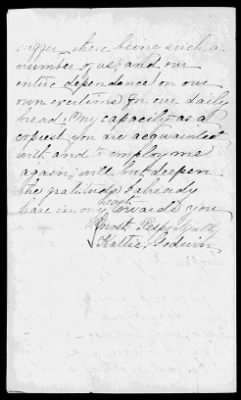 suffer there being such a
number of us, and our
entire dependence on our
own exertions for our daily
bread. My capacity as a
copyist you are acquainted
with and to employ me
again, will but deepen
the gratitude I already
heart
have in my towards you
Most Respectfully
Kattie Goduin